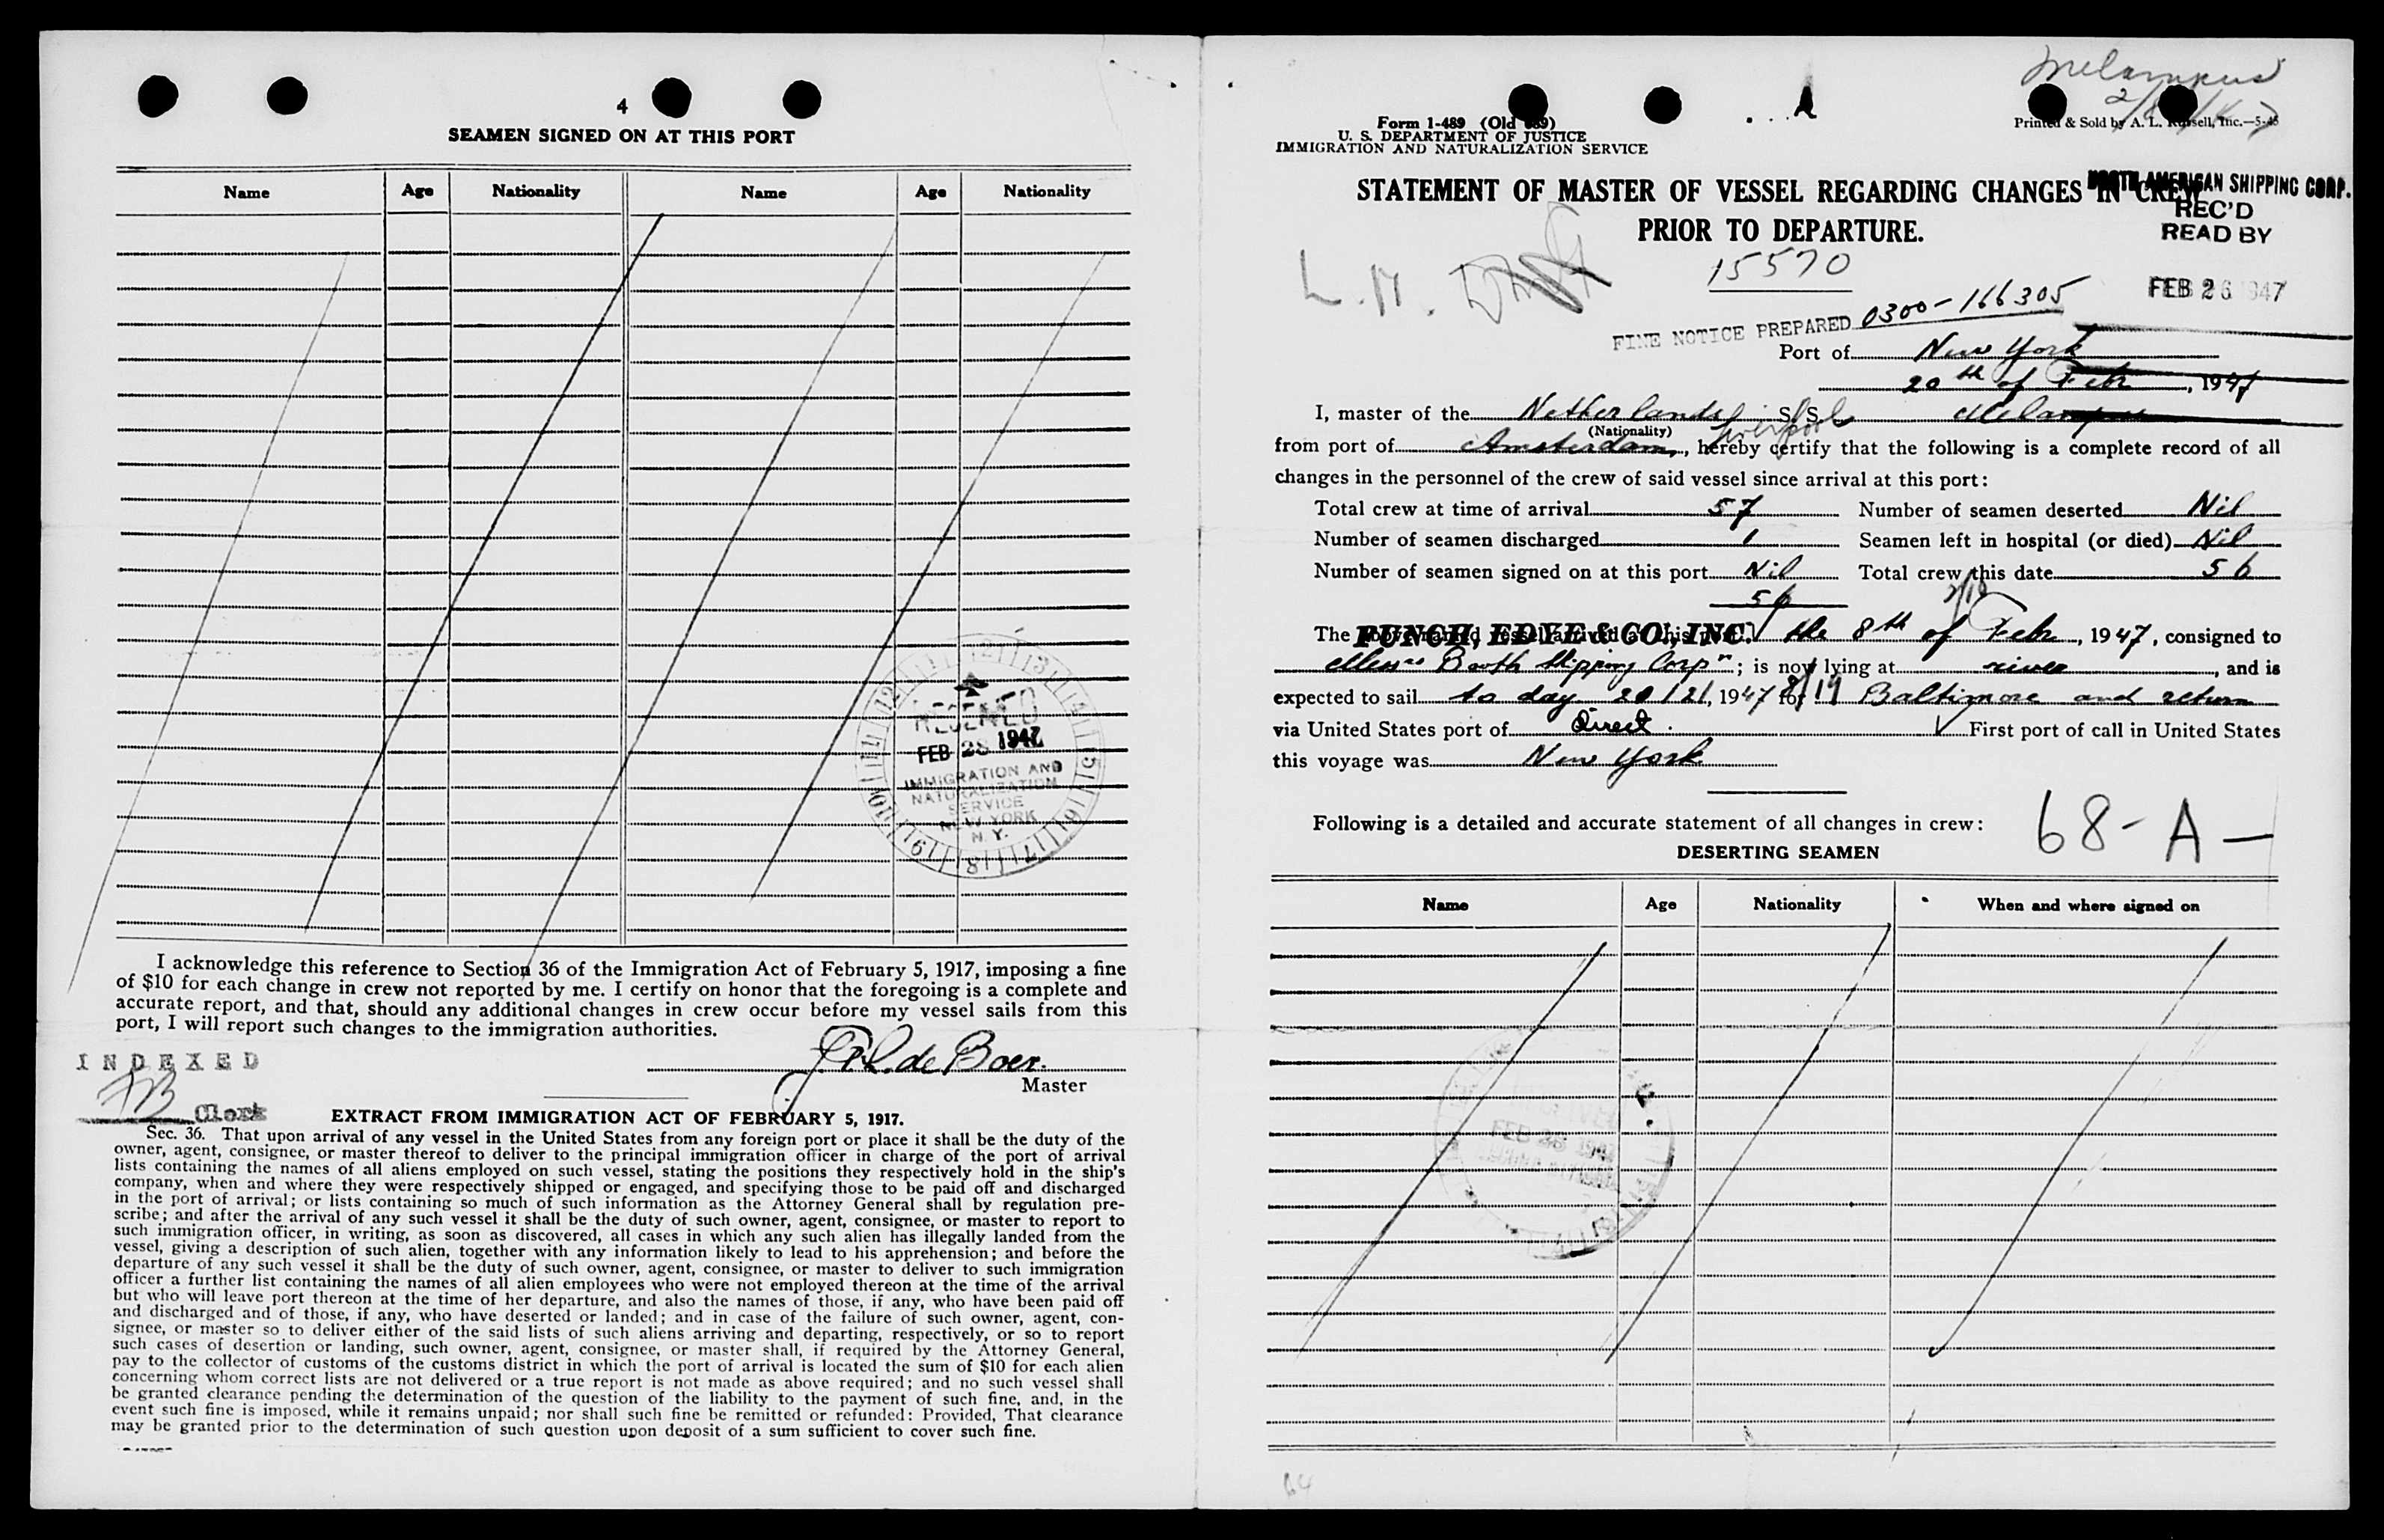 4
SEAMEN SIGNED ON AT THIS PORT
Name Age Nationality Name Age Nationality
FEB 28 1947
IMMIGRATION AND
NATURALIZATION
SERVICE
NEW YORK
N. Y.
I acknowledge this reference to Section 36 of the Immigration Act of February 5, 1917, imposing a fine
of $10 for each change in crew not reported by me. I certify on honor that the foregoing is a complete and
accurate report, and that, should any additional changes in crew occur before my vessel sails from this
port, I will report such changes to the immigration authorities.
de Boer.
Master
INDEXED
Clerk
EXTRACT FROM IMMIGRATION ACT OF FEBRUARY 5, 1917.
Sec. 36. That upon arrival of any vessel in the United States from any foreign port or place it shall be the duty of the
owner, agent, consignee, or master thereof to deliver to the principal immigration officer in charge of the port of arrival
lists containing the names of all aliens employed on such vessel, stating the positions they respectively hold in the ship's
company, when and where they were respectively shipped or engaged, and specifying those to be paid off and discharged
in the port of arrival; or lists containing so much of such information as the Attorney General shall by regulation pre-
scribe; and after the arrival of any such vessel it shall be the duty of such owner, agent, consignee, or master to report to
such immigration officer, in writing, as soon as discovered, all cases in which any such alien has illegally landed from the
vessel, giving a description of such alien, together with any information likely to lead to his apprehension; and before the
departure of any such vessel it shall be the duty of such owner, agent, consignee, or master to deliver to such immigration
officer a further list containing the names of all alien employees who were not employed thereon at the time of the arrival
but who will leave port thereon at the time of her departure, and also the names of those, if any, who have been paid off
and discharged and of those, if any, who have deserted or landed; and in case of the failure of such owner, agent, con-
signee, or master so to deliver either of the said lists of such aliens arriving and departing, respectively, or so to report
such cases of desertion or landing, such owner, agent, consignee, or master shall, if required by the Attorney General,
pay to the collector of customs of the customs district in which the port of arrival is located the sum of $10 for each alien
concerning whom correct lists are not delivered or a true report is not made as above required; and no such vessel shall
be granted clearance pending the determination of the question of the liability to the payment of such fine, and, in the
event such fine is imposed, while it remains unpaid; nor shall such fine be remitted or refunded: Provided, That clearance
may be granted prior to the determination of such question upon deposit of a sum sufficient to cover such fine.
Melampus
Form 1-489 (Old 689)
U. S. DEPARTMENT OF JUSTICE
IMMIGRATION AND NATURALIZATION SERVICE
Printed & Sold by A. L. Russell, Inc.—5-45
STATEMENT OF MASTER OF VESSEL REGARDING CHANGES IN CREW
PRIOR TO DEPARTURE.
NORTH AMERICAN SHIPPING CORP.
REC'D
READ BY
FEB 26 1947
15570
FINE NOTICE PREPARED 0300-166305
Port of New York
20th of Feb, 1947
I, master of the Netherlands S. S. Melampus
(Nationality) Liverpool
from port of Amsterdam, hereby certify that the following is a complete record of all
changes in the personnel of the crew of said vessel since arrival at this port:
Total crew at time of arrival 57 Number of seamen deserted Nil
Number of seamen discharged 1 Seamen left in hospital (or died) Nil
Number of seamen signed on at this port Nil Total crew this date 56
56
FUNCH, EDYE & CO., INC.
The above-named vessel arrived at this port the 8th of Feb, 1947, consigned to
Messrs Booth Shipping Corpn; is now lying at river, and is
expected to sail to day 20/2/, 1947 for Baltimore and return
via United States port of Direct. First port of call in United States
this voyage was New York
Following is a detailed and accurate statement of all changes in crew:
68-A-
DESERTING SEAMEN
Name Age Nationality When and where signed on